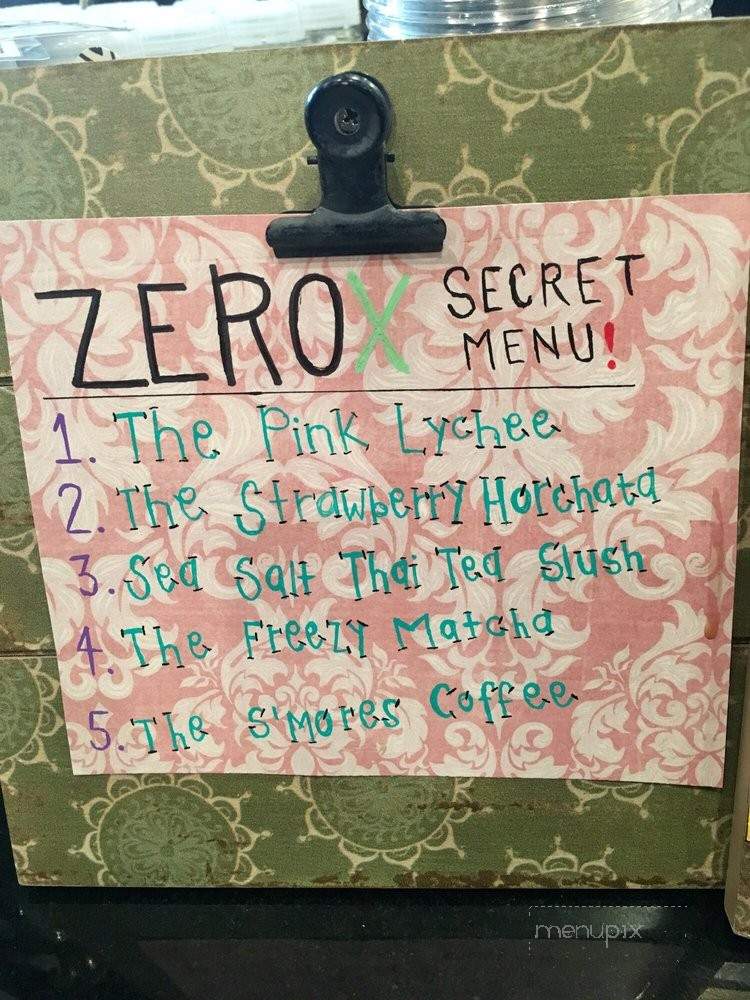 ZEROX SECRET MENU!
1. The Pink Lychee
2. The Strawberry Horchata
3. Sea Salt Thai Tea Slush
4. The Freezy Matcha
5. The S'mores Coffee
menupix